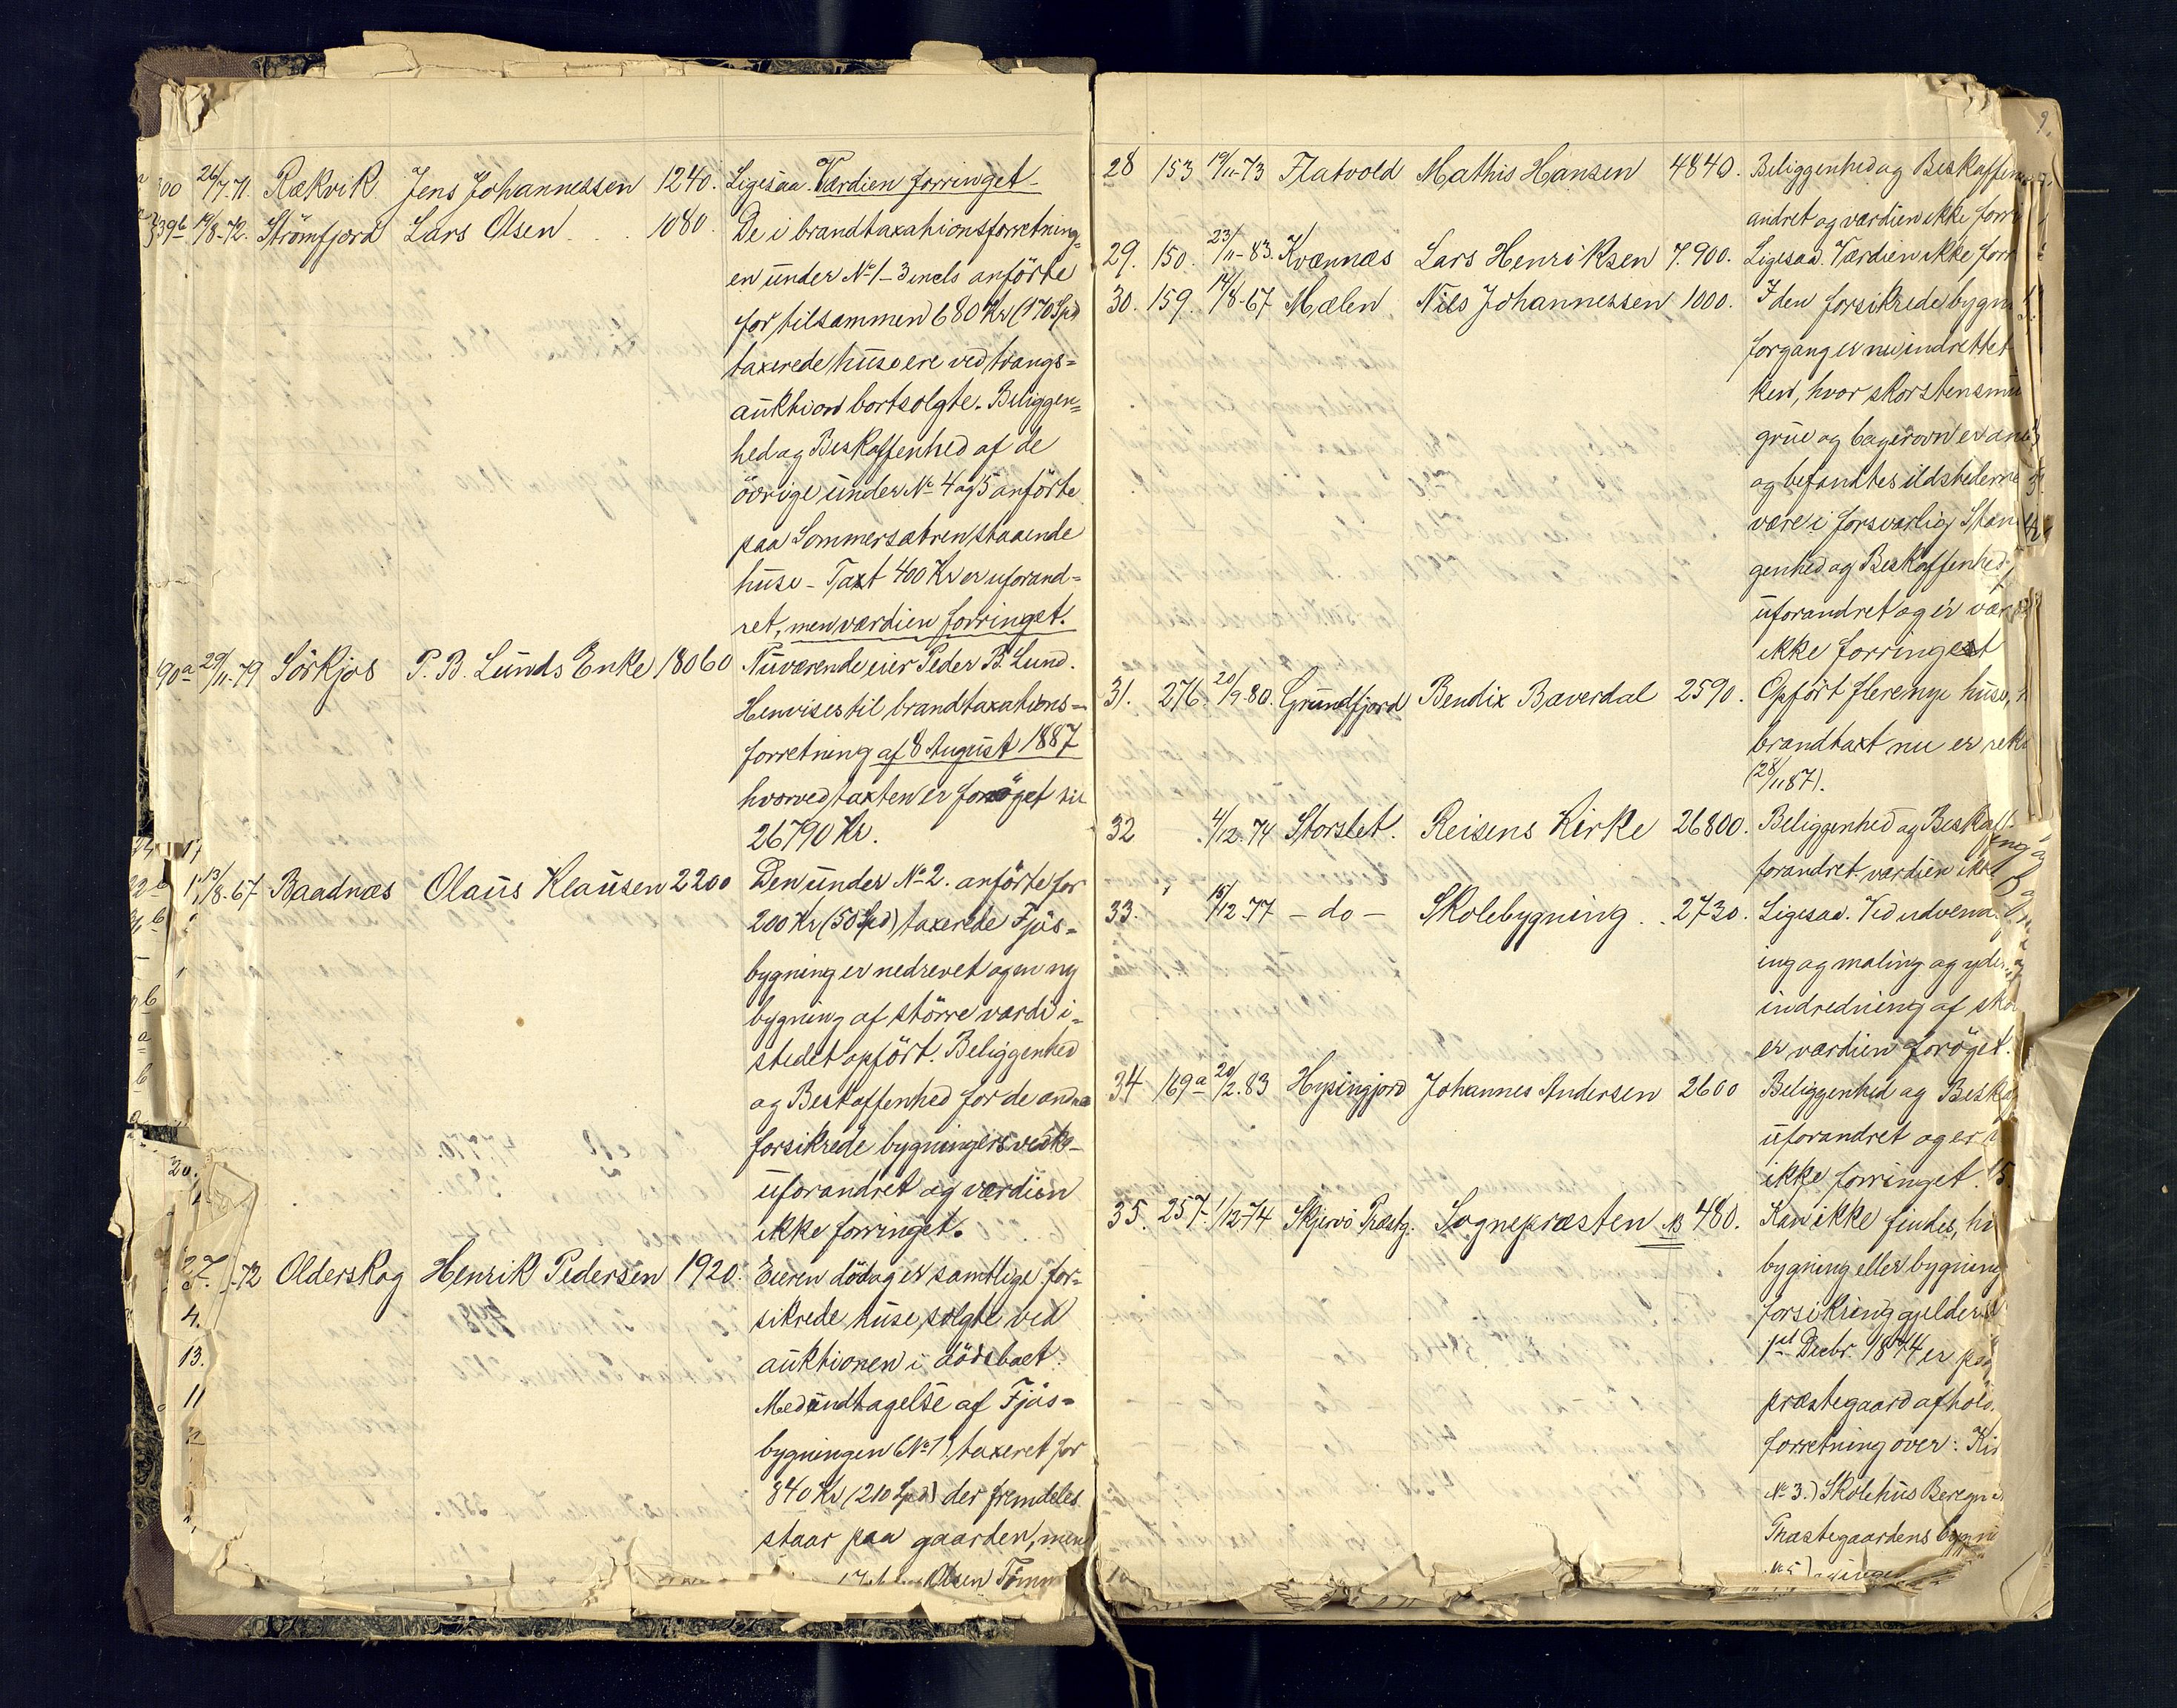 300 26/7-71. Rækvik Jens Johannessen 1240. Ligesaa. Værdien forringet.
339b 14/8-72. Strömfjord Lars Olsen 1080. De i brandtaxationsforretning-
en under No 1-3 incls anförte
for tilsammen 680 Kr (170 Spd)
taxerede huse ere ved tvangs-
auktion bortsolgte. Beliggen-
hed og Beskaffenhed af de
övrige under No 4 og 5 anförte
paa Sommersætren staaende
huse - Taxt 400 Kr er uforand-
ret, men værdien forringet.
90a 29/11-79 Sörkjos P. B. Lunds Enke 18060 Nuværende eier Peder B. Lund.
Henvises til brandtaxations-
forretning af 8 August 1887
hvorved taxten er foröget til
26790 Kr.
13/8-67 Baadnæs Olaus Klausen 2200 Den under No 2. anförte for
200 Kr (50 Spd) taxerede Fjös-
bygning er nedrevet og en ny
bygning af större værdi i-
stedet opfört. Beliggenhed
og Beskaffenhed for de andre
forsikrede bygningers vedk-
uforandret og værdien
ikke forringet.
-72 Olderskog Henrik Pedersen 1920. Eieren död og er samtlige for-
sikrede huse, solgte ved
auktionen i dödsboet.
Med undtagelse af Fjös-
bygningen (No 1) taxeret for
840 Kr (210 Spd) der fremdeles
staar paa gaarden, men
Olsen
20.
4.
13.
11
9.
28 153 19/11-73 Flatvold Mathis Hansen 4840. Beliggenhed og Beskaffen
andret og værdien ikke forri
29. 150. 23/11-83. Kvænnæs Lars Henriksen 7.900. Ligesaa. Værdien ikke forr
30. 159. 14/8-67 Mælen Nils Johannessen 1000. I den forsikrede bygn
forgang er nu indrettet
ken, hvor skorstensmu
grue og bagerovn er an
og befandtes ildstederne
være i forsvarlig Stan
genhed og Beskaffenhed
uforandret og er vær
ikke forringet
31. 276. 20/9-80. Grundfjord Bendix Bæverdal 2590. Opfört flere nye huse,
brandtaxt nu er rek
(28/11 87).
32 4/12.74 Storslet. Reisens Kirke 26800. Beliggenhed og Beskaff
forandret værdien ikke
33. 15/12.77 - do - Skolebygning 2730. Ligesaa. Ved udvend
ing og maling og yder
indredning af sko
er værdien foröget.
34 169a 20/2.83 Hysingjord Johannes Andersen 2600 Beliggenhed og Beska
uforandret og er
ikke forringet.
35. 257. 1/12 74 Skjervö Præstg. Sognepræsten 480. Kan ikke findes, h
bygning eller bygning
forsikring gjelder
1st Decbr. 1874 er paa
præstegaard afhold
forretning over: Kir
No 3.) Skolehus
Præstegaardens bygni